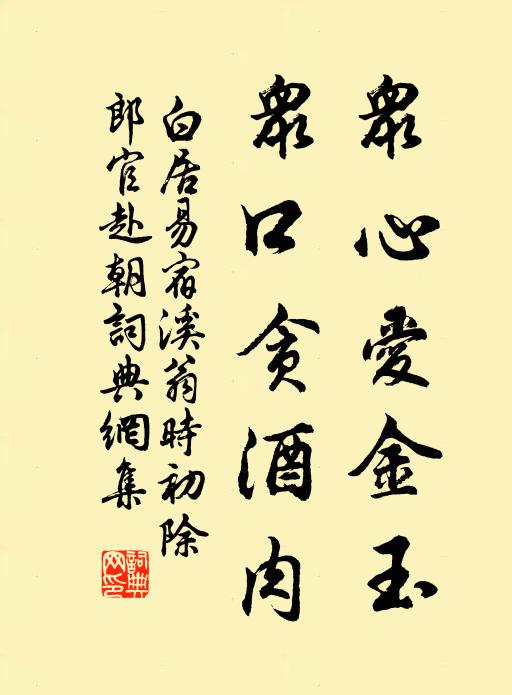 眾心愛金玉
眾口貪酒肉
白居易宿溪翁時初除
郎官赴朝詞典網集
詞典
网印